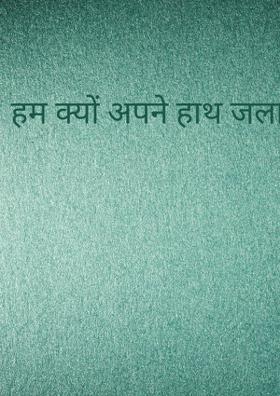 हम क्यों अपने हाथ जला